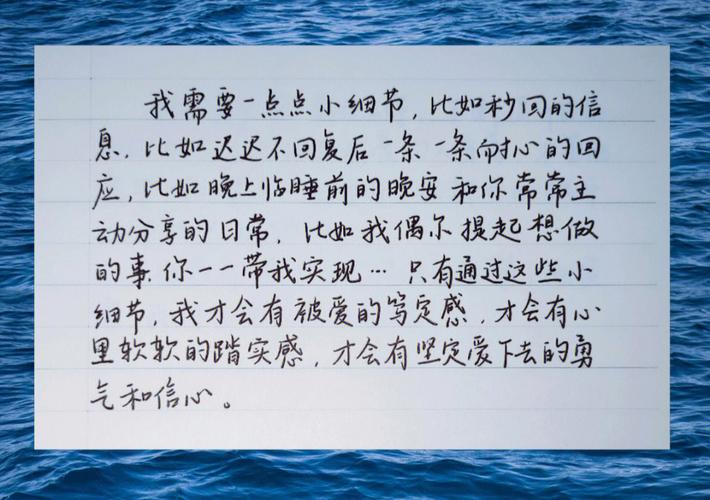 我需要一点点小细节，比如秒回的信
息，比如迟迟不回复后一条一条耐心的回
应，比如晚上临睡前的晚安和你常常主
动分享的日常，比如我偶尔提起想做
的事你一一带我实现…只有通过这些小
细节，我才会有被爱的笃定感，才会有心
里软软的踏实感，才会有坚定爱下去的勇
气和信心。